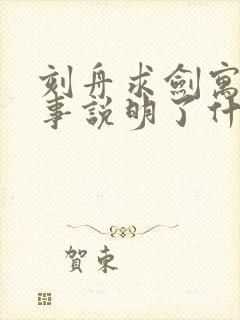 刻舟求劍寓
事說明了什
賀東